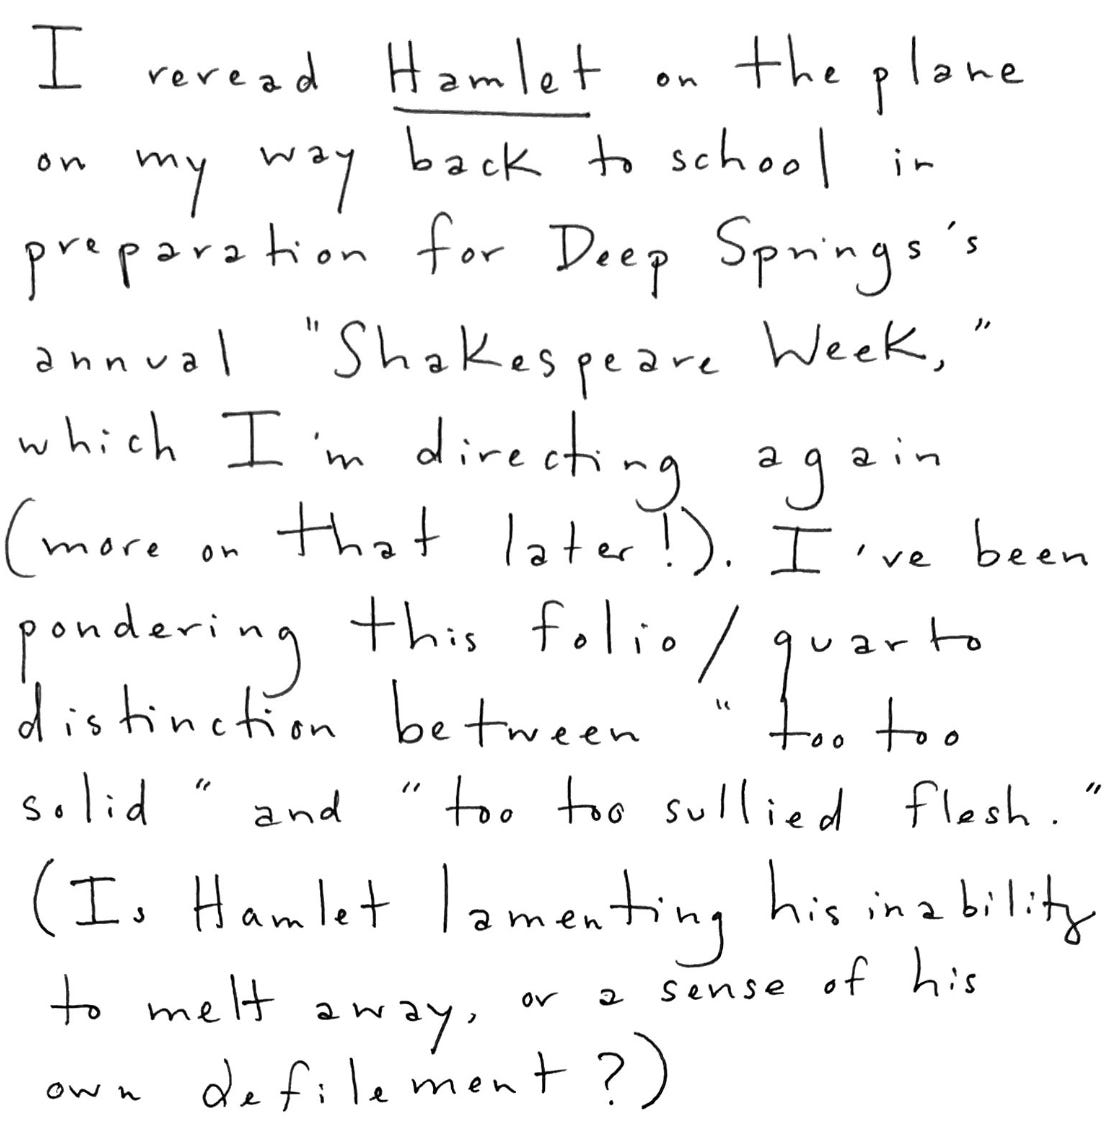 I reread Hamlet on the plane
on my way back to school in
preparation for Deep Springs's
annual "Shakespeare Week,"
which I'm directing again
(more on that later!). I've been
pondering this folio/quarto
distinction between "too too
solid" and "too too sullied flesh."
(Is Hamlet lamenting his inability
to melt away, or a sense of his
own defilement?)